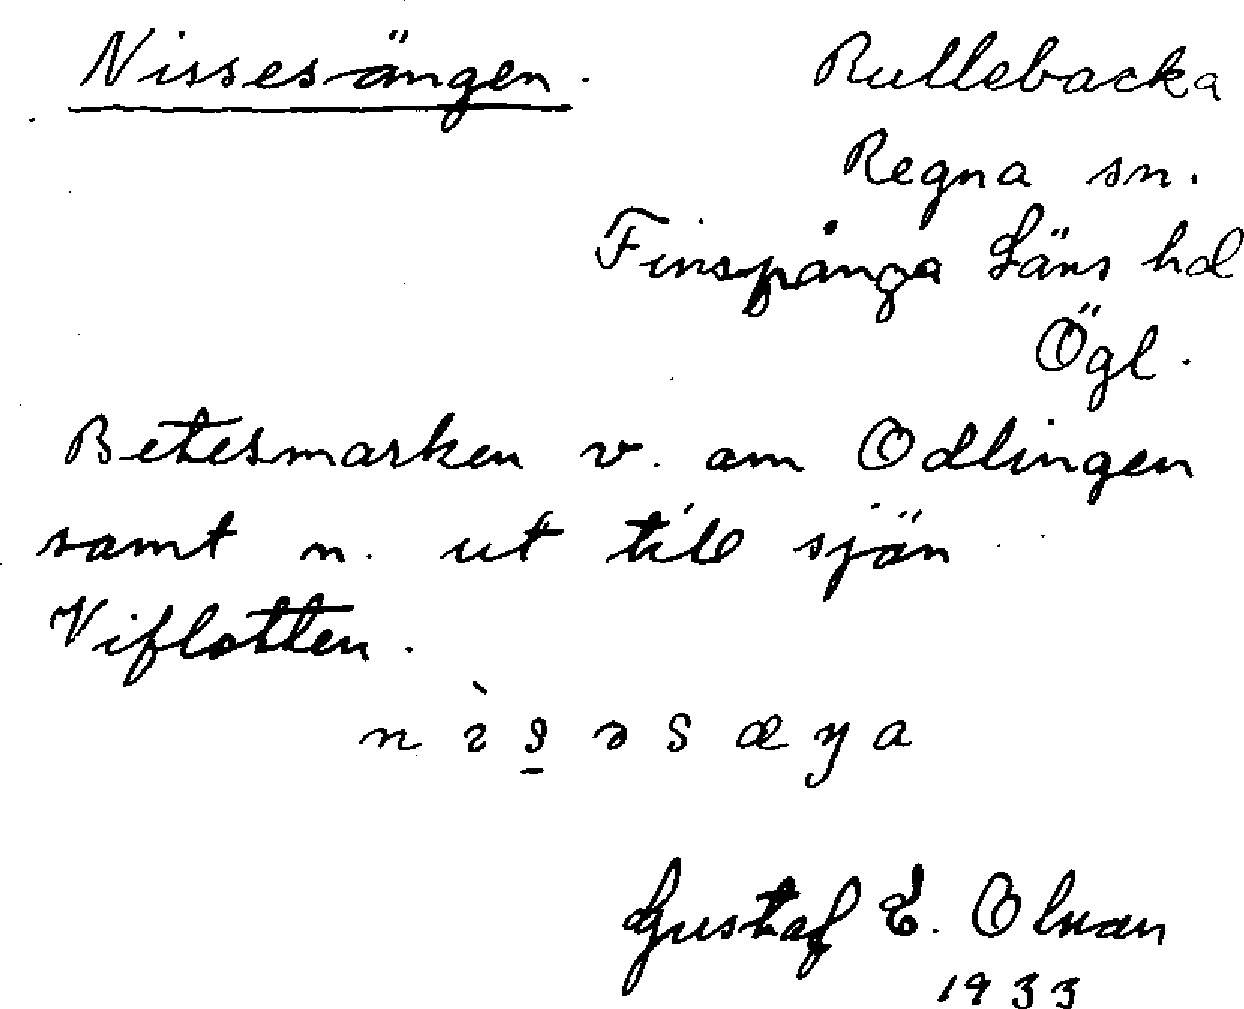 Nissesängen. Rullebacka
Regna sn.
Finspånga Läns hd
Ögl.
Betesmarken v. om Odlingen
samt n. ut till sjön
Viflotten.
Gustaf E. Olson
1933